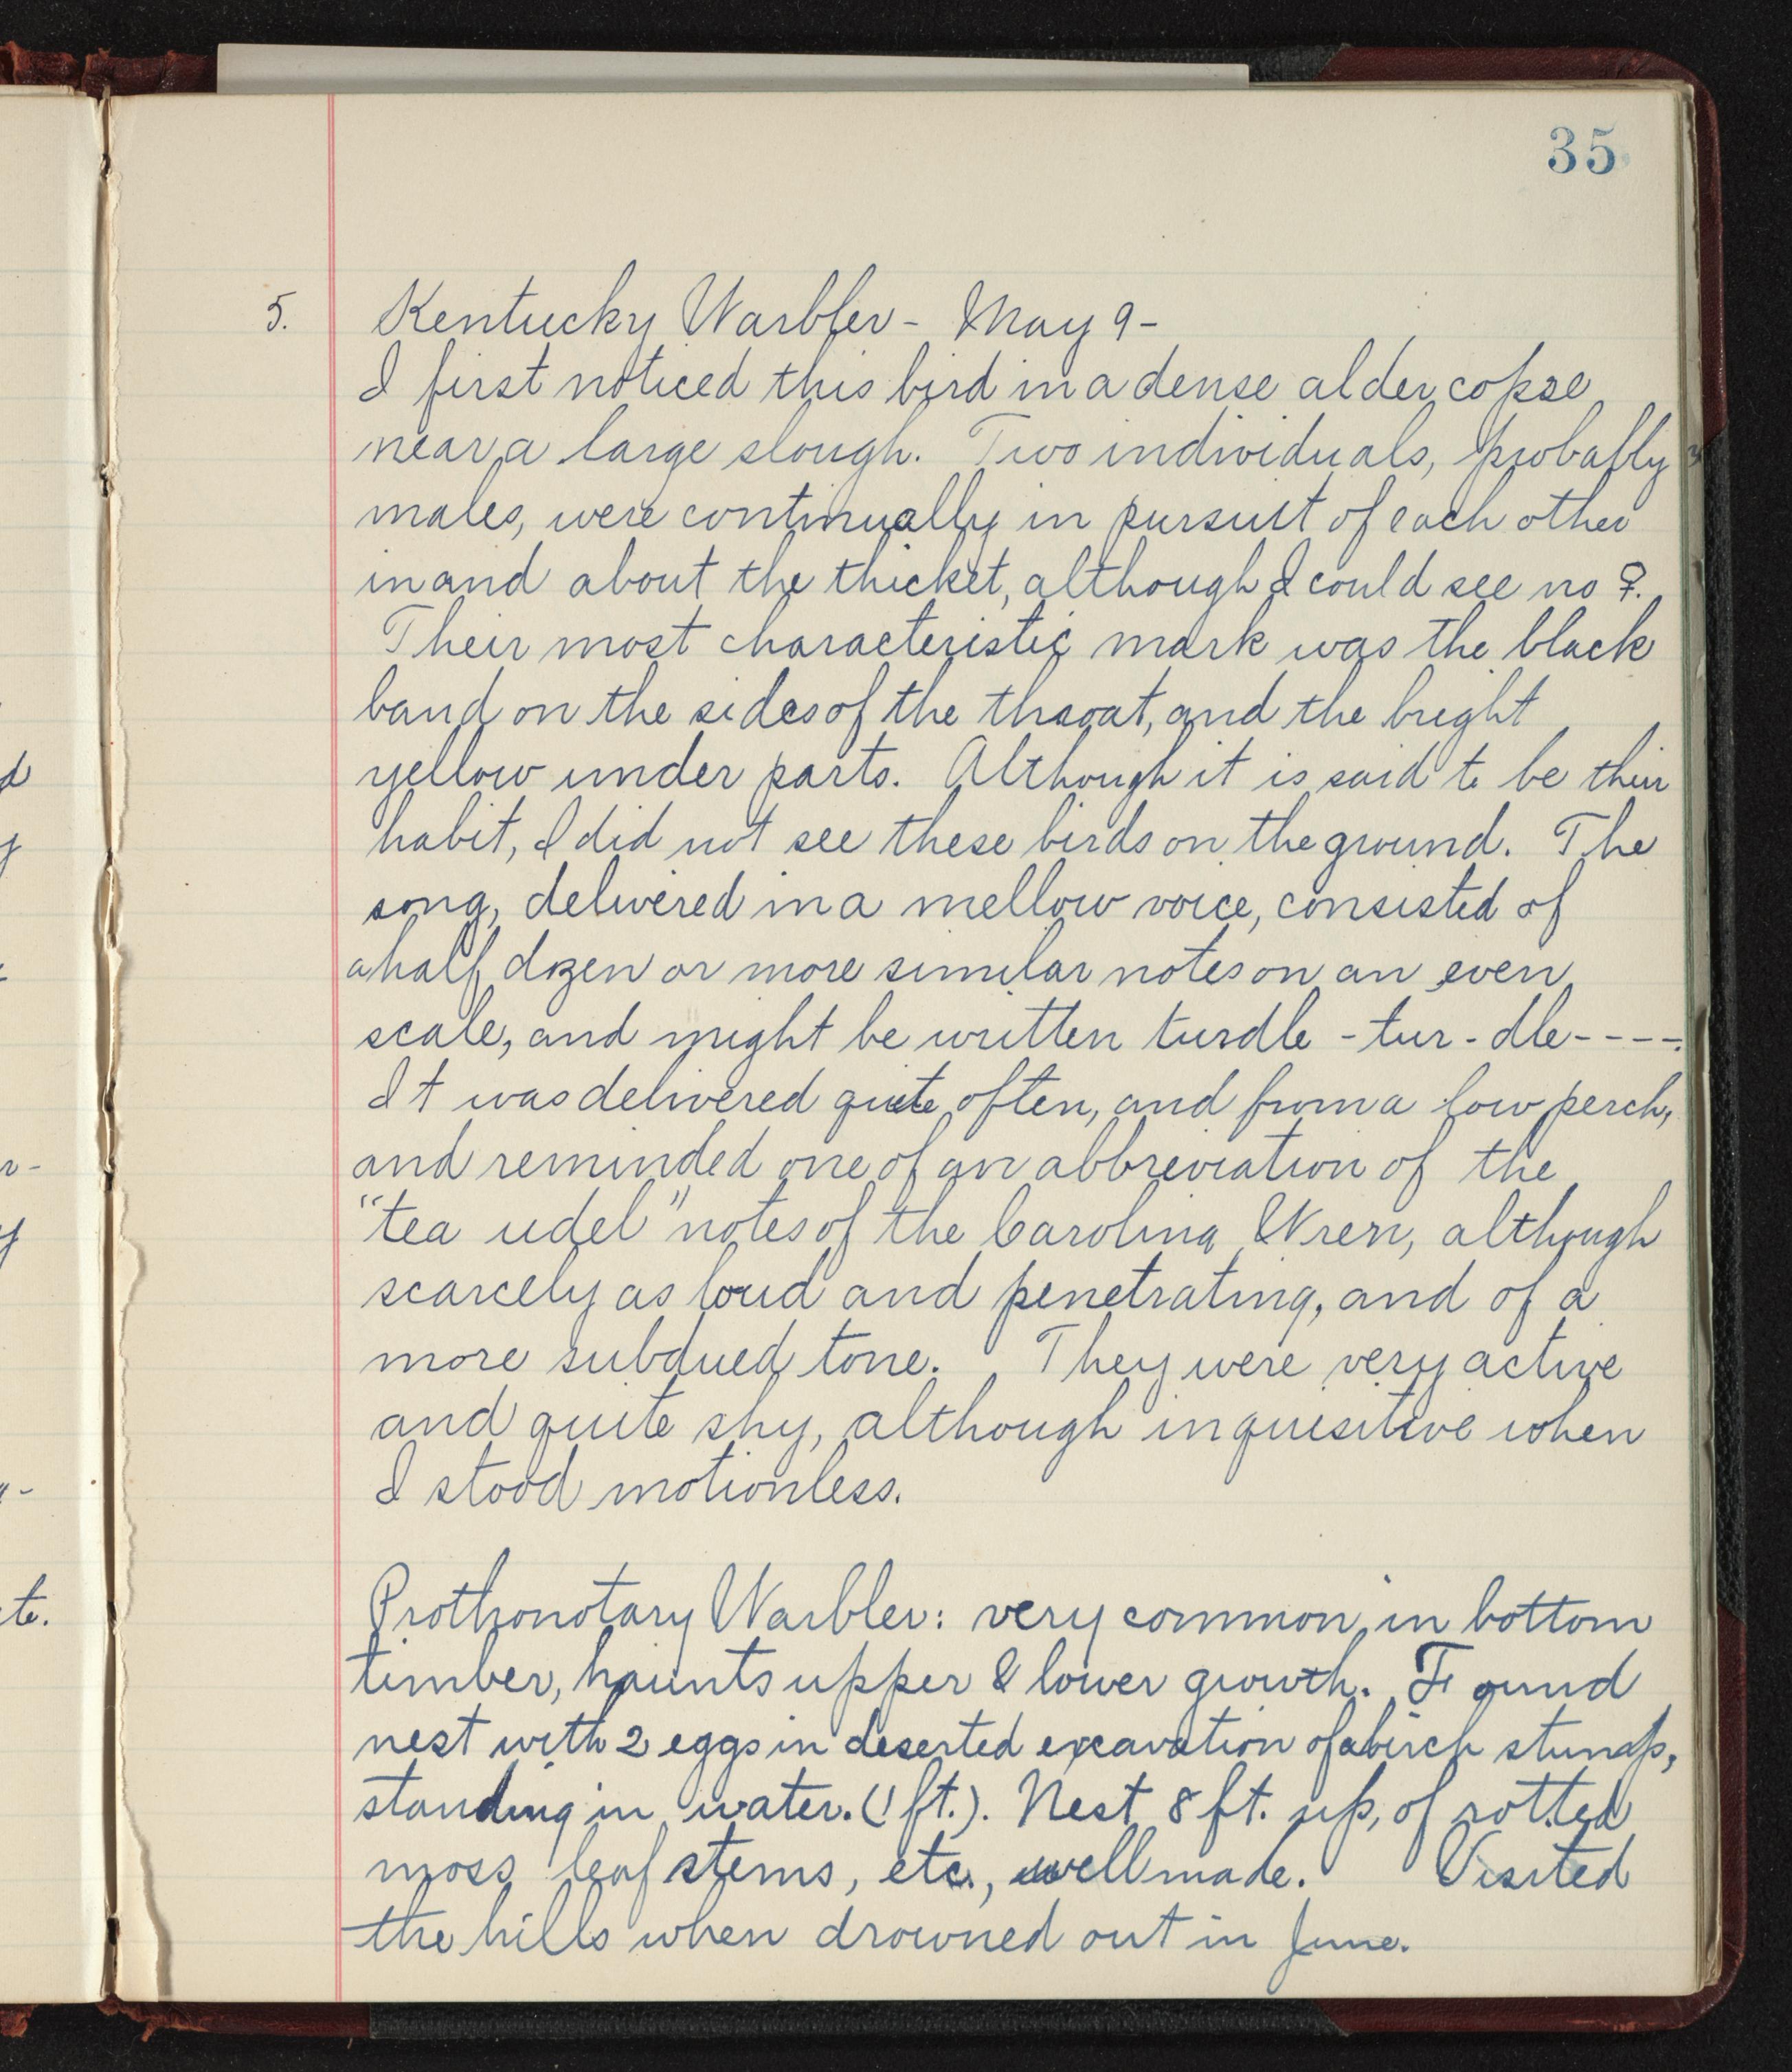 35
5. Kentucky Warbler - May 9 -
I first noticed this bird in a dense alder copse
near a large slough. Two individuals, probably
males, were continually in pursuit of each other
in and about the thicket, although I could see no ♀.
Their most characteristic mark was the black
band on the sides of the throat, and the bright
yellow under parts. Although it is said to be their
habit, I did not see these birds on the ground. The
song, delivered in a mellow voice, consisted of
a half dozen or more similar notes on an even
scale, and might be written turdle - tur - dle - - - -.
It was delivered quite often, and from a low perch,
and reminded one of an abbreviation of the
"tea udel" notes of the Carolina Wren, although
scarcely as loud and penetrating, and of a
more subdued tone. They were very active
and quite shy, although inquisitive when
I stood motionless.
Prothonotary Warbler: very common in bottom
timber, haunts upper & lower growth. Found
nest with 2 eggs in deserted excavation of a birch stump,
standing in water. (1 ft.). Nest 8 ft. up, of rotted
moss, leaf stems, etc., well made. Visited
the hills when drowned out in June.